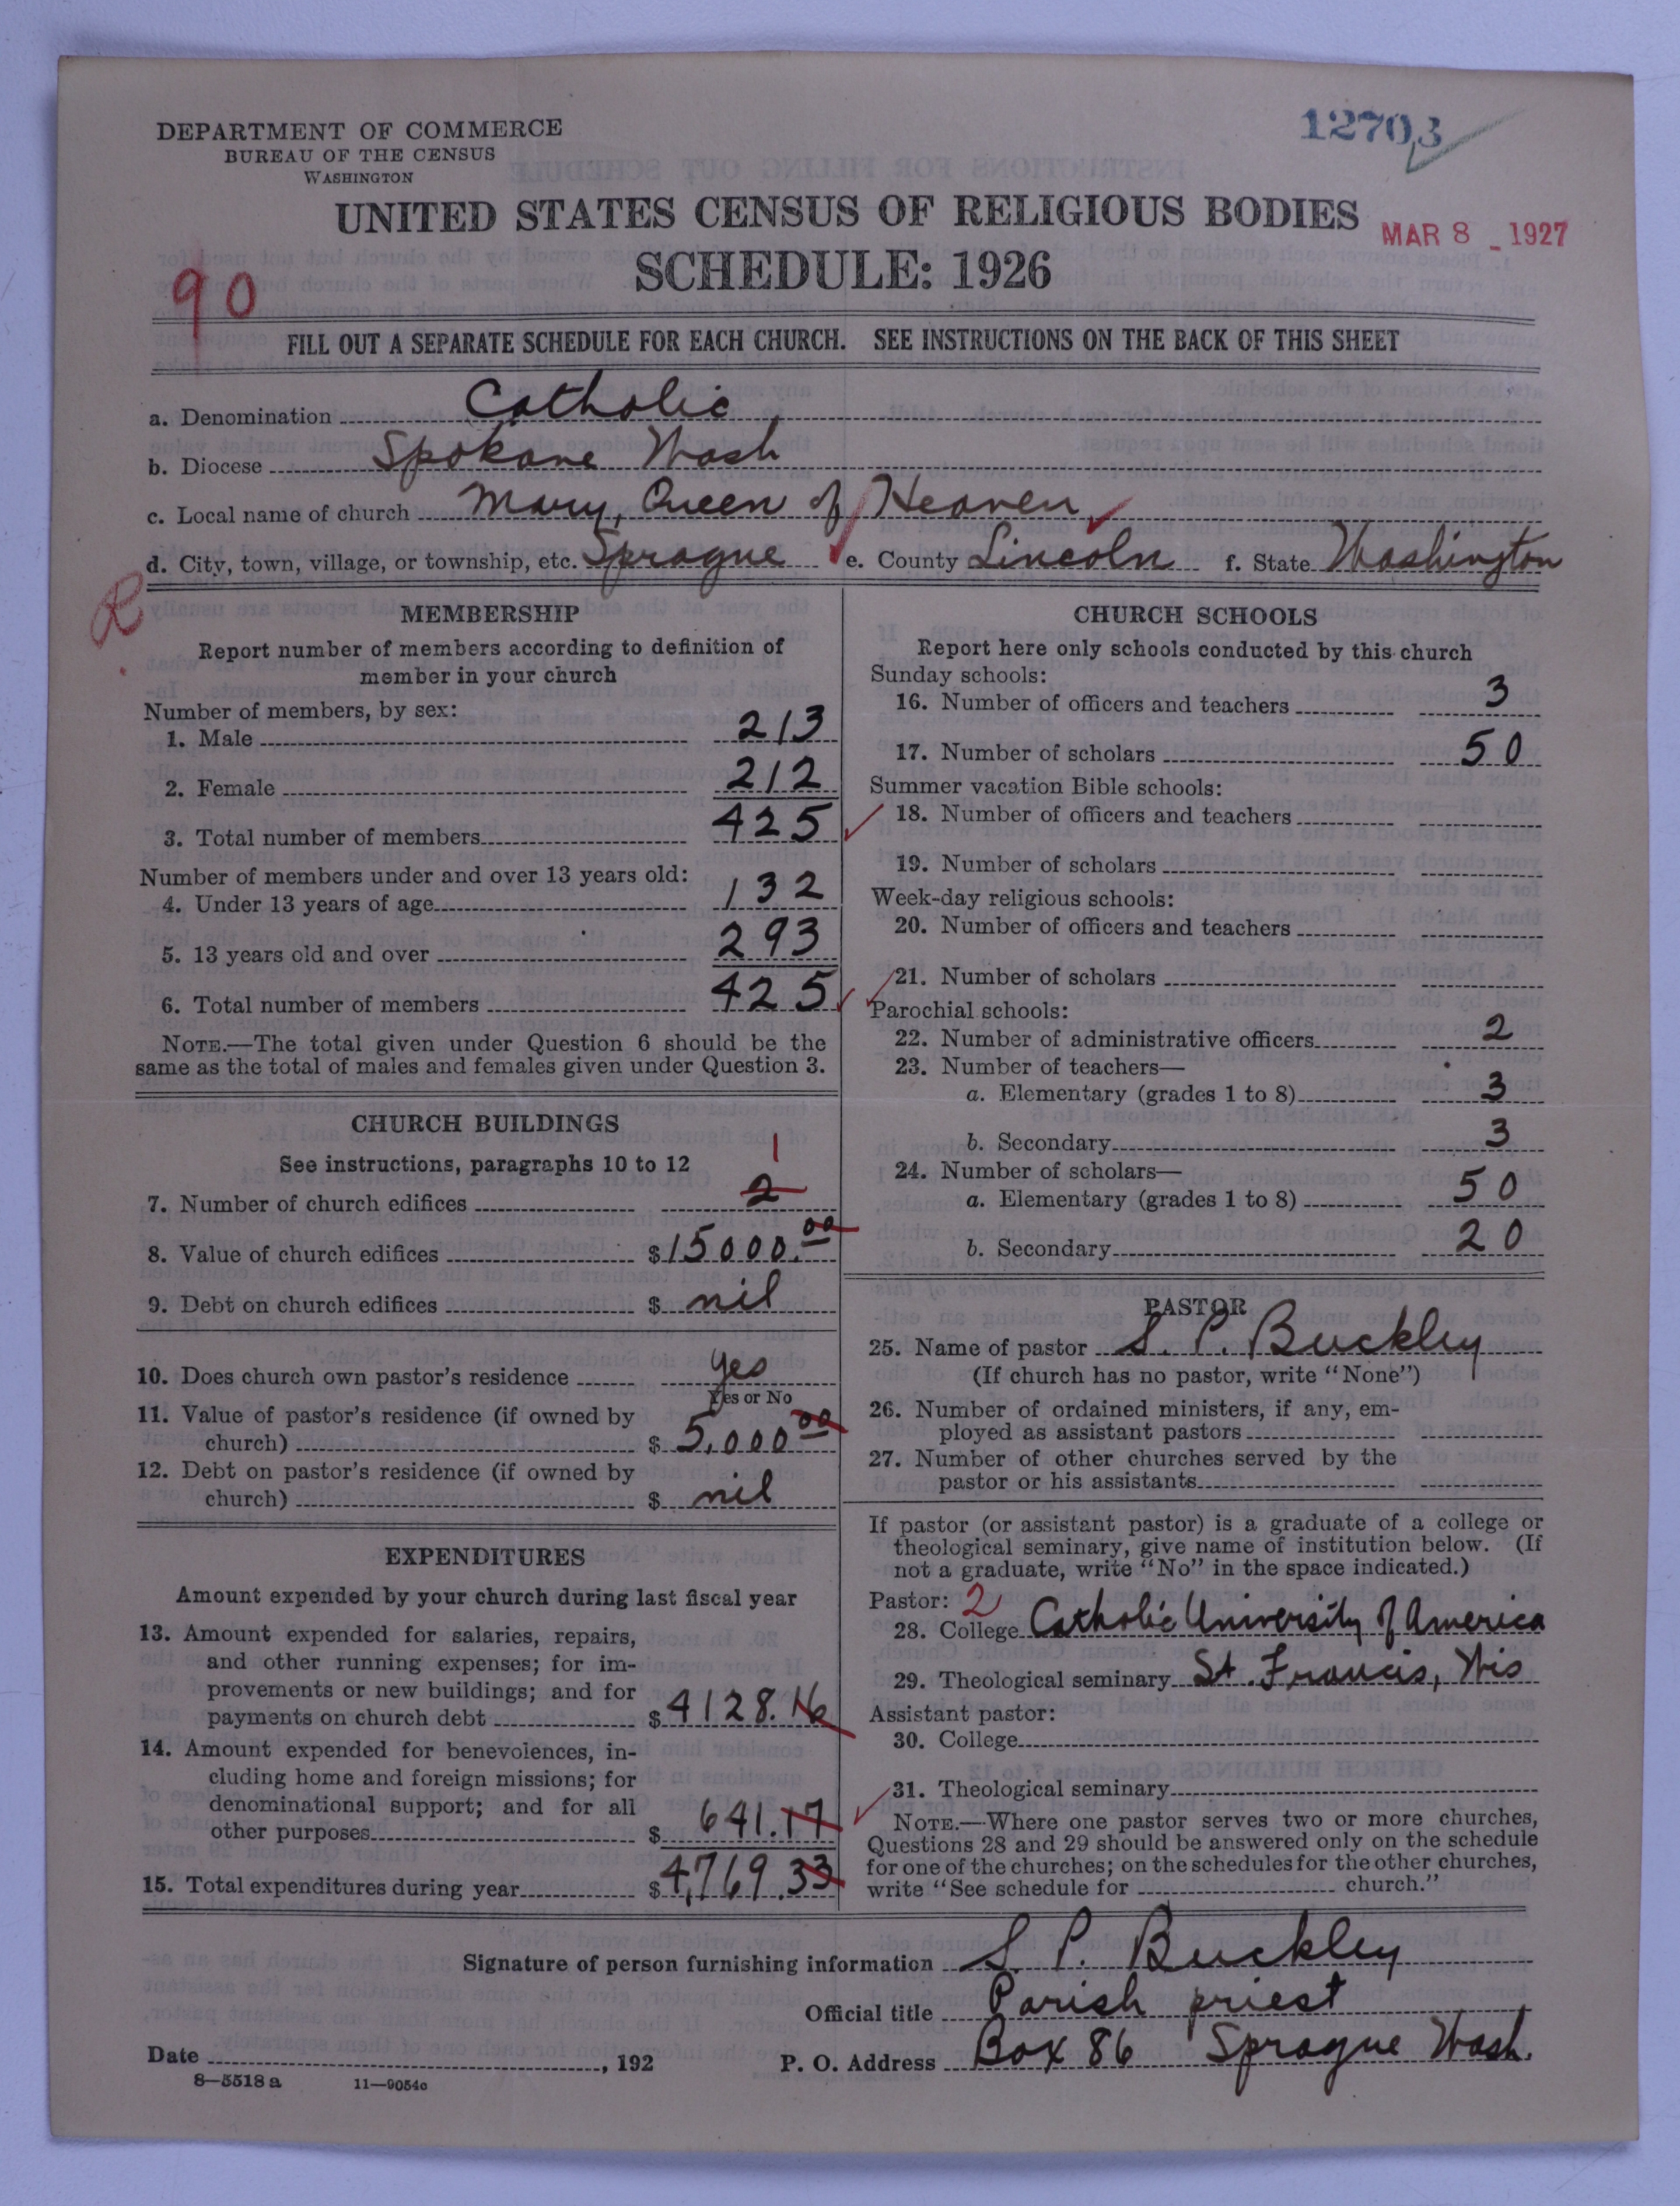 DEPARTMENT OF COMMERCE
BUREAU OF THE CENSUS
WASHINGTON
12703
UNITED STATES CENSUS OF RELIGIOUS BODIES
MAR 8 - 1927
SCHEDULE: 1926
90
FILL OUT A SEPARATE SCHEDULE FOR EACH CHURCH. SEE INSTRUCTIONS ON THE BACK OF THIS SHEET
a. Denomination Catholic
b. Diocese Spokane Wash
c. Local name of church Mary, Queen of Heaven
d. City, town, village, or township, etc. Sprague e. County Lincoln f. State Washington
R
MEMBERSHIP
Report number of members according to definition of
member in your church
Number of members, by sex:
1. Male 213
2. Female 212
3. Total number of members 425
Number of members under and over 13 years old:
4. Under 13 years of age 132
5. 13 years old and over 293
6. Total number of members 425
NOTE.—The total given under Question 6 should be the
same as the total of males and females given under Question 3.
CHURCH BUILDINGS
See instructions, paragraphs 10 to 12
1
7. Number of church edifices 2
8. Value of church edifices $15000.00
9. Debt on church edifices $ nil
10. Does church own pastor's residence yes
Yes or No
11. Value of pastor's residence (if owned by
church) $ 5,000 00
12. Debt on pastor's residence (if owned by
church) $ nil
EXPENDITURES
Amount expended by your church during last fiscal year
13. Amount expended for salaries, repairs,
and other running expenses; for im-
provements or new buildings; and for
payments on church debt $ 4128.16
14. Amount expended for benevolences, in-
cluding home and foreign missions; for
denominational support; and for all
other purposes $ 641.17
15. Total expenditures during year $ 4,769.33
CHURCH SCHOOLS
Report here only schools conducted by this church
Sunday schools:
16. Number of officers and teachers 3
17. Number of scholars 50
Summer vacation Bible schools:
18. Number of officers and teachers
19. Number of scholars
Week-day religious schools:
20. Number of officers and teachers
21. Number of scholars
Parochial schools:
22. Number of administrative officers 2
23. Number of teachers—
a. Elementary (grades 1 to 8) 3
b. Secondary 3
24. Number of scholars—
a. Elementary (grades 1 to 8) 50
b. Secondary 20
PASTOR
25. Name of pastor S. P. Buckley
(If church has no pastor, write "None")
26. Number of ordained ministers, if any, em-
ployed as assistant pastors
27. Number of other churches served by the
pastor or his assistants
If pastor (or assistant pastor) is a graduate of a college or
theological seminary, give name of institution below. (If
not a graduate, write "No" in the space indicated.)
Pastor: 2
28. College Catholic University of America
29. Theological seminary St. Francis, Wis
Assistant pastor:
30. College
31. Theological seminary
NOTE.—Where one pastor serves two or more churches,
Questions 28 and 29 should be answered only on the schedule
for one of the churches; on the schedules for the other churches,
write "See schedule for church."
Signature of person furnishing information S. P. Buckley
Official title Parish priest
Date , 192 P. O. Address Box 86 Sprague Wash.
8—5518 a 11—9054c